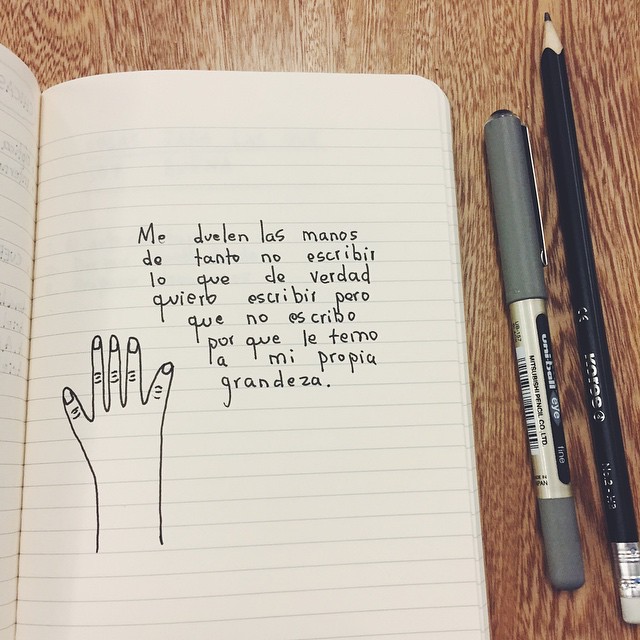 Me duelen las manos
de tanto no escribir
lo que de verdad
quiero escribir pero
que no escribo
por que le temo
a mi propia
grandeza.
uniball eye fine
MITSUBISHI PENCIL CO. LTD
MADE IN JAPAN
UB-157
CE kores
No. 2 - HB